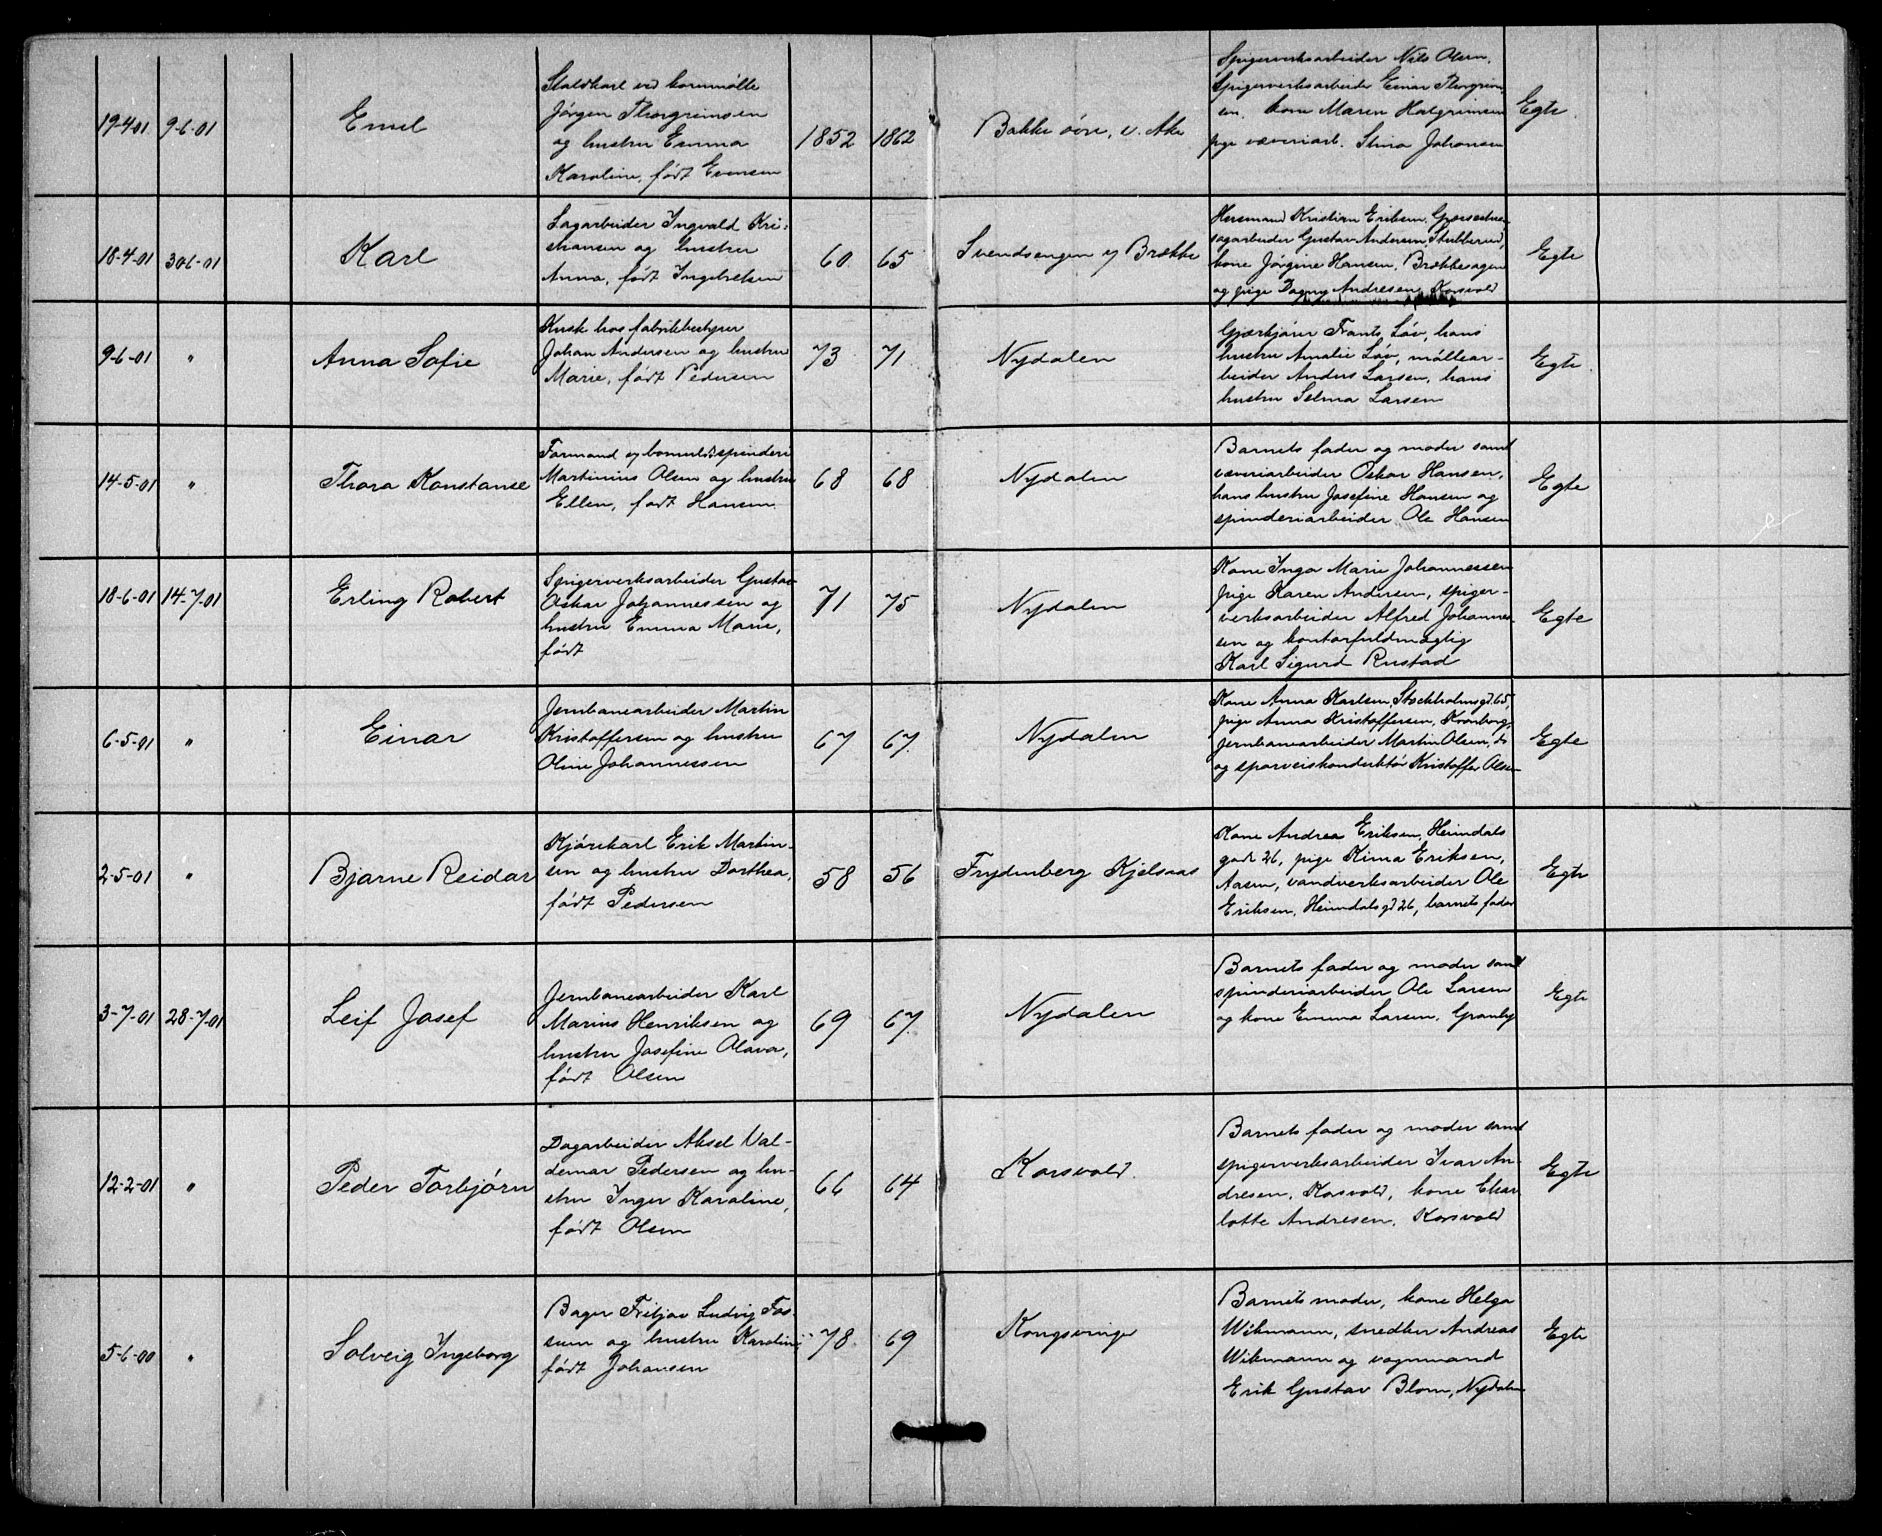 19-4-01 9-6-01 Emil
Staldkarl ved kornmølle
Jörgen Thorgrimsen
og hustru Emma
Karoline, født Evensen
1852 1862
Bakke övre, v. Aker
Spigerverksarbeider Nils Olsen,
spigerverksarbeider Einar Thorgrim-
sen, kone Maren Halgrimsen
pige væveriarb. Stina Johansen
Egte
18-4-01 30-6-01 Karl
Sagarbeider Ingvald Kri-
stiansen og hustru
Anna, født Ingebretsen
60 65
Svendsengen v/ Brække
Kristian Eriksen,
sagarbeider Gustav Andersen, Stubberud,
kone Jørgine Hansen, Brækkesagen
og pige Dagny Andresen, Korsvold
Egte
9-6-01 " Anna Sofie
Kusk hos fabrikbestyrer
Johan Andersen og hustru
Marie, født Pedersen
73 71
Nydalen
Gjørtler Frants Löv, hans
hustru Amalie Löv, møllear-
beider Anders Larsen, hans
hustru Selma Larsen
Egte
14-5-01 " Thora Konstanse
Formand v/ bomuldsspinderi
Martinius Olsen og hustru
Ellen, født Hansen
68 68
Nydalen
Barnets fader og moder samt
væveriarbeider Oskar Hansen,
hans hustru Josefine Hansen og
spinderiarbeider Ole Hansen
Egte
18-6-01 14-7-01 Erling Robert
Spigerverksarbeider Gustav
Oskar Johannessen og
hustru Emma Marie,
født
71 75
Nydalen
Kone Inga Marie Johannessen
pige Karen Andersen, spiger-
verksarbeider Alfred Johannes-
sen og kontorfuldmægtig
Karl Sigurd Rustad
Egte
6-5-01 " Einar
Jernbanearbeider Martin
Kristoffersen og hustru
Oline Johannessen
67 67
Nydalen
Kone Anna Karlsen, Stockholmsgd. 65,
pige Anna Kristoffersen, Kronborg,
jernbanearbeider Martin Olsen, do
og sporveiskonduktör Kristoffer Olsen
Egte
2-5-01 " Bjarne Reidar
Kjörekarl Erik Martin-
sen og hustru Dorthea,
født Pedersen
58 56
Frydenberg Kjelsaas
Kone Andrea Eriksen, Heimdals
gad 26, pige Kima Eriksen,
Aasen, vandverksarbeider Ole
Eriksen, Heimdalsgd 26, barnets fader
Egte
3-7-01 28-7-01 Leif Josef
Jernbanearbeider Karl
Marius Henriksen og
hustru Josefine Olava,
født Olsen
69 67
Nydalen
Barnets fader og moder samt
spinderiarbeider Ole Larsen
og kone Emma Larsen, Granby
Egte
12-2-01 " Peder Torbjörn
Dagarbeider Aksel Val-
demar Pedersen og hu-
stru Inger Karoline,
født Olsen
66 64
Korsvold.
Barnets fader og moder samt
spigerverksarbeider Ivar An-
dresen, Korsvold, kone Char-
lotte Andresen, Korsvold
Egte
5-6-00 " Solveig Ingeborg
Bager Fritjov Ludvig Fos-
sum og hustru Karoline
født Johansen
78 69
Kongsvinger
Barnets moder, kone Helga
Wikmann, snedker Andreas
Wikmann og vognmand
Erik Gustav Blom, Nydalen
Egte